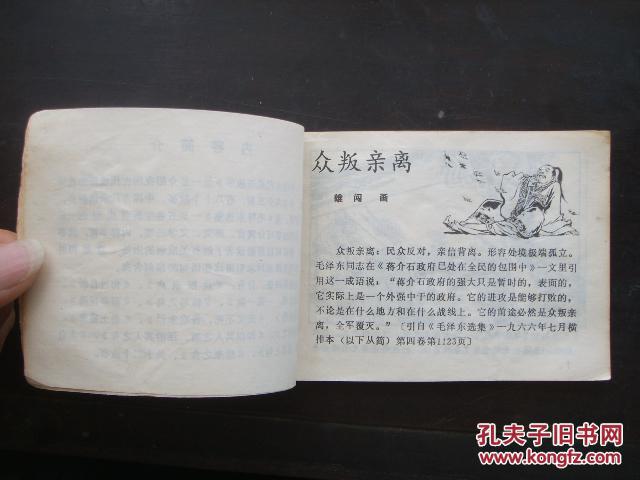 众叛亲离
雄闯 画
众叛亲离：民众反对，亲信背离。形容处境极端孤立。
毛泽东同志在《蒋介石政府已处在全民的包围中》一文里引
用这一成语说：“蒋介石政府的强大只是暂时的，表面的，
它实际上是一个外强中干的政府。它的进攻是能够打败的，
不论是在什么地方和在什么战线上。它的前途必然是众叛亲
离，全军覆灭。”〔引自《毛泽东选集》一九六六年七月横
排本（以下从简）第四卷第1123页〕
孔夫子旧书网
www.kongfz.com